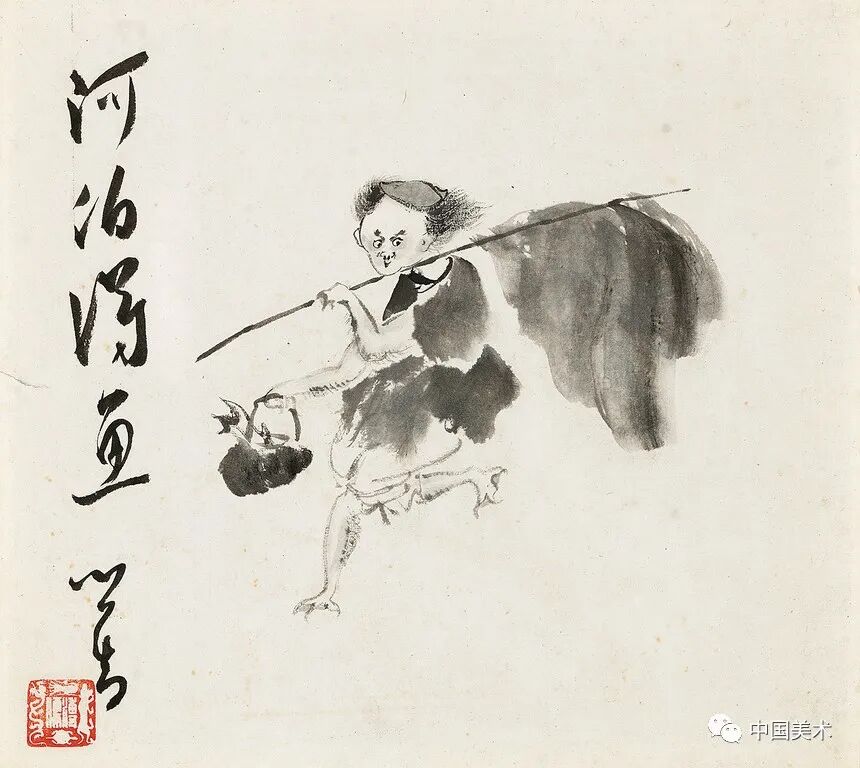 河伯得鱼
心畬
中国美术